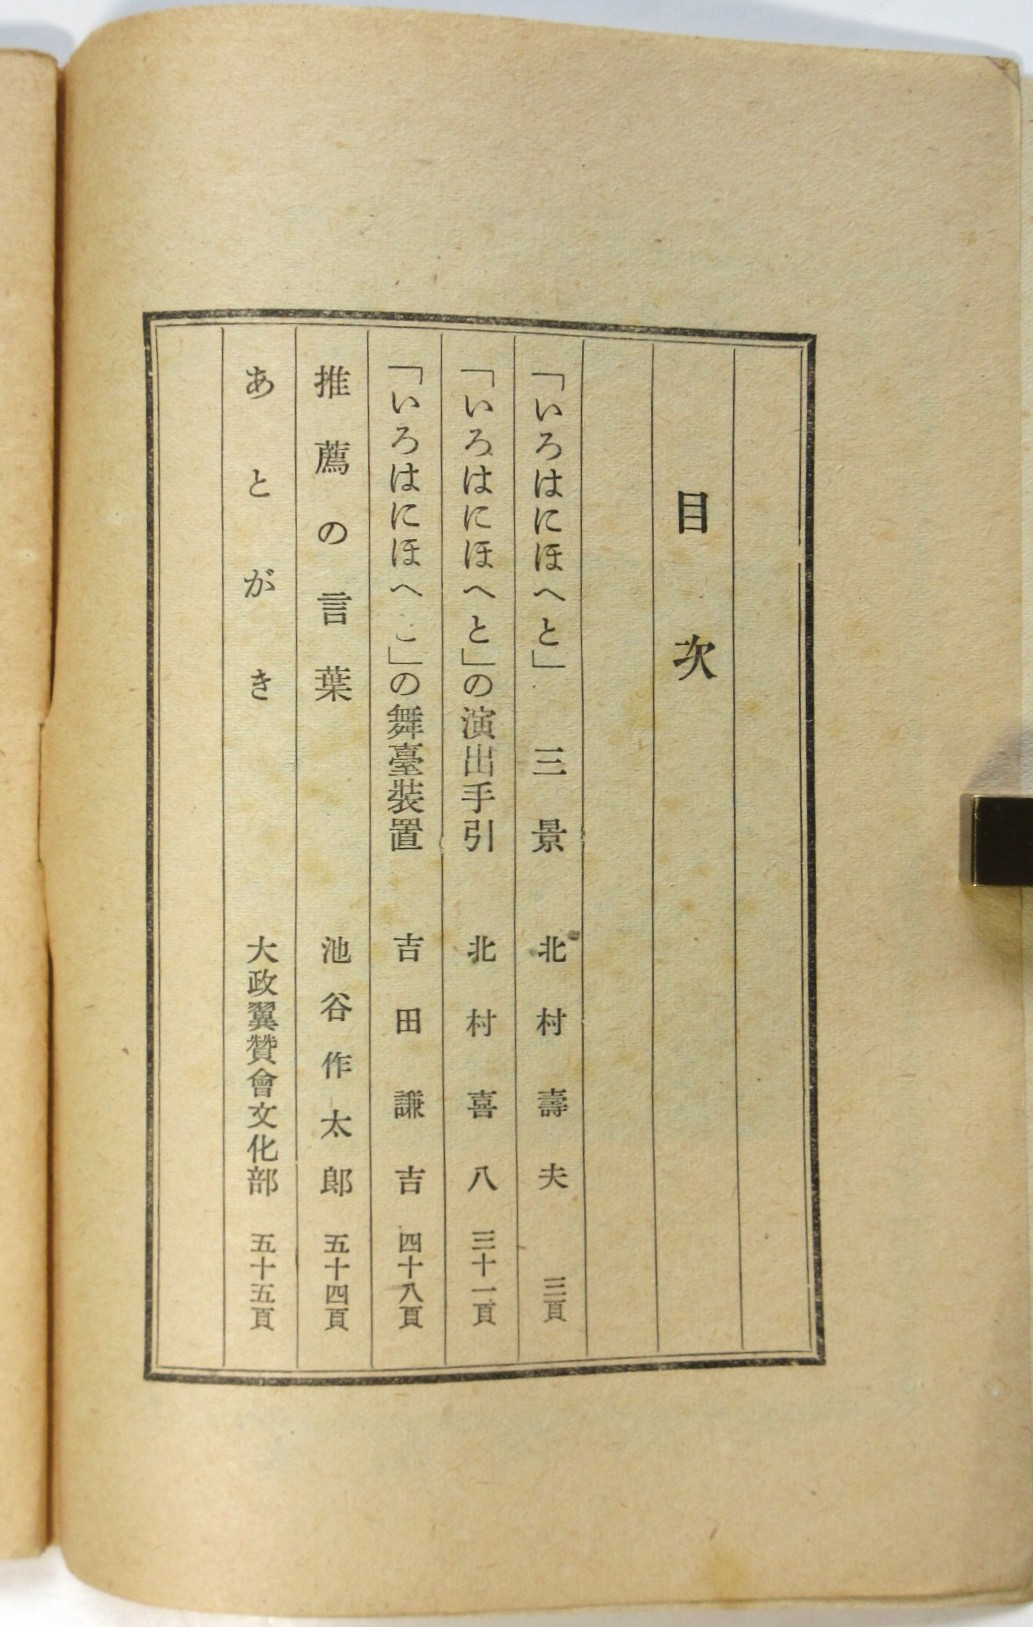 目次
「いろはにほへと」 三景 北村壽夫 三頁
「いろはにほへと」の演出手引 北村喜八 三十一頁
「いろはにほへと」の舞臺裝置 吉田謙吉 四十八頁
推薦の言葉 池谷作太郎 五十四頁
あとがき 大政翼贊會文化部 五十五頁